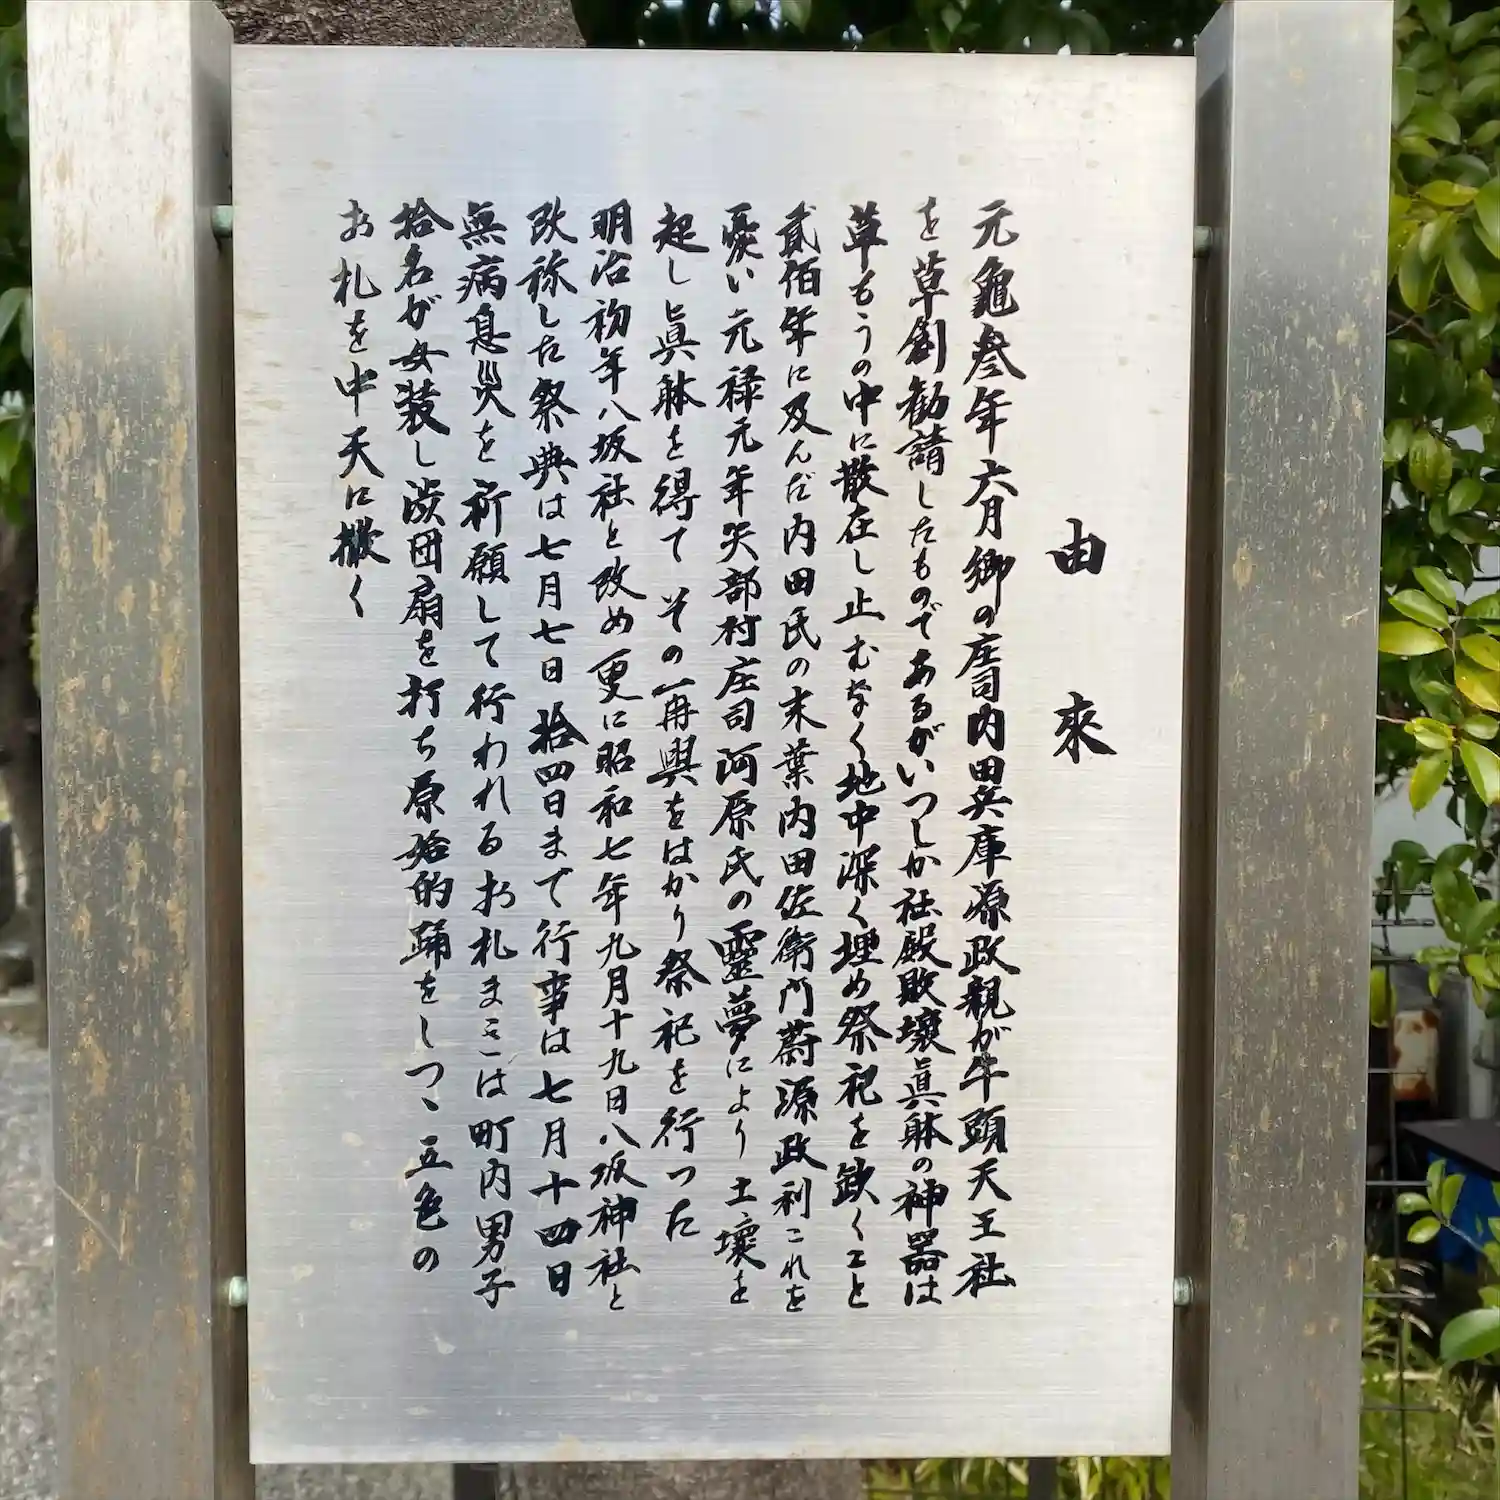 由来
元龜叄年六月郷の庄司内田兵庫源政親が牛頭天王社
を草創勧請したものであるがいつしか社殿敗壞眞躰の神器は
草もうの中に散在し止むなく地中深く埋め祭祀を欽くこと
貳佰年に及んだ内田氏の末葉内田佐衛門蔚源政利これを
憂い元禄元年矢部村庄司河原氏の靈夢により土壤を
起し眞躰を得て その再興をはかり祭祀を行つた
明治初年八坂社と改め更に昭和七年九月十九日八坂神社と
改称した祭典は七月七日拾四日まで行事は七月十四日
無病息災を祈願して行われるお札まきは町内男子
拾名が女装し渋団扇を打ち原始的踊をしつゝ五色の
お札を中天に撒く